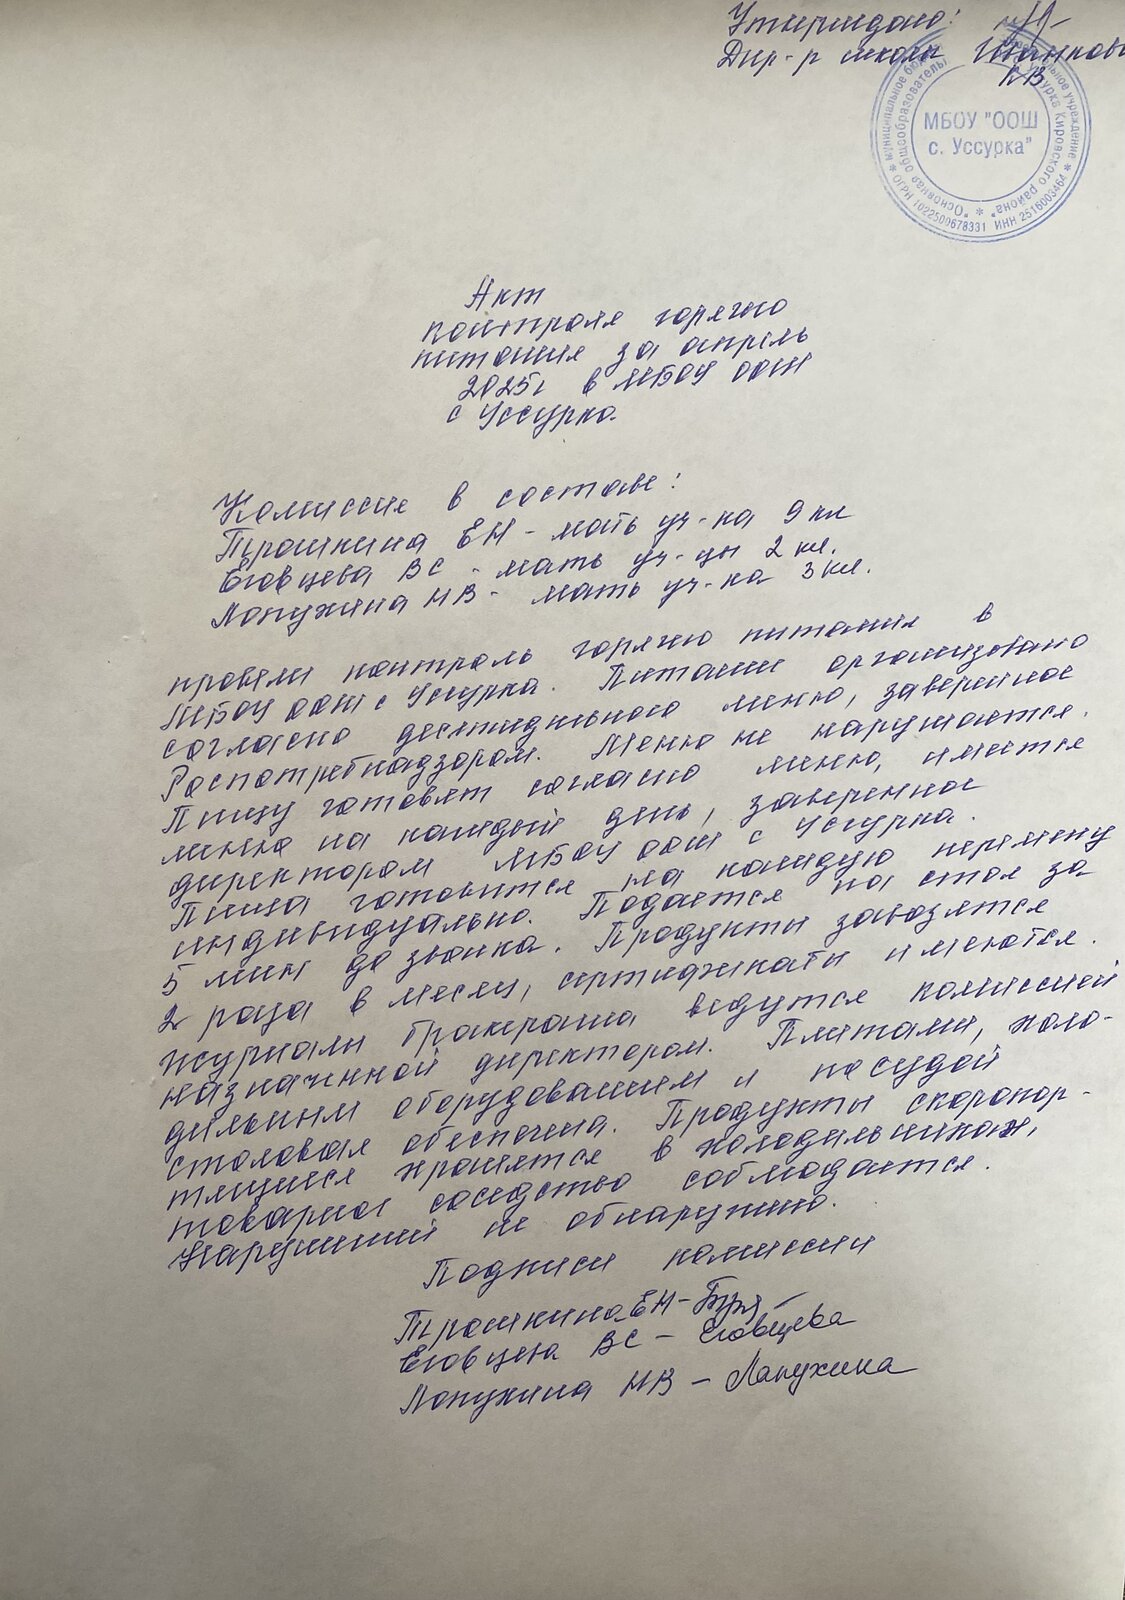 Утверждаю:
Дир-р школы
КВ
МБОУ "ООШ
с. Уссурка"
ОГРН 1022500678331 ИНН 2516003464
Акт
контроля горячего
питания за апрель
2025г в МБОУ ООШ
с Уссурка.
Комиссия в составе:
Трошкина ЕН - мать уч-ка 9 кл
Еговцева ВС - мать уч-цы 2 кл.
Лопухина НВ - мать уч-ка 3 кл.
провели контроль горячего питания в
МБОУ ООШ с Уссурка. Питание организовано
согласно десятидневного меню, заверенное
Роспотребнадзором. Меню не нарушаются.
Пищу готовят согласно меню, имеется
меню на каждый день, заверенное
директором МБОУ ООШ с Уссурка.
Пища готовится на каждую перемену
индивидуально. Подается на стол за
5 мин до звонка. Продукты завозятся
2 раза в месяц, сертификаты имеются.
Журналы бракеража ведутся комиссией
назначенной директором. Плитами, холо-
дильным оборудованием и посудой
столовая обеспечена. Продукты скоропор-
тящиеся хранятся в холодильниках,
товарное соседство соблюдается.
Нарушений не обнаружено.
Подписи комиссии
Трошкина ЕН -
Еговцева ВС - Еговцева
Лопухина НВ - Лапухина